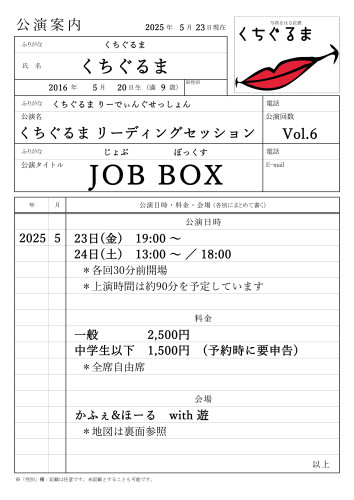 公演案内
2025 年 5 月 23 日現在
写真をはる位置
くちぐるま
ふりがな くちぐるま
氏 名 くちぐるま
2016 年 5 月 20 日生（満 9 歳）
※性別
ふりがな くちぐるま りーでぃんぐせっしょん
電話
公演名
公演回数
くちぐるま リーディングセッション Vol.6
ふりがな じょぶ ぼっくす
電話
公演タイトル
E-mail
JOB BOX
年 月 公演日時・料金・会場（各別にまとめて書く）
公演日時
2025 5 23日(金) 19:00 〜
24日(土) 13:00 〜 ／ 18:00
＊各回30分前開場
＊上演時間は約90分を予定しています
料金
一般 2,500円
中学生以下 1,500円 （予約時に要申告）
＊全席自由席
会場
かふぇ&ほーる with 遊
＊地図は裏面参照
以上
※「性別」欄：記載は任意です。未記載とすることも可能です。